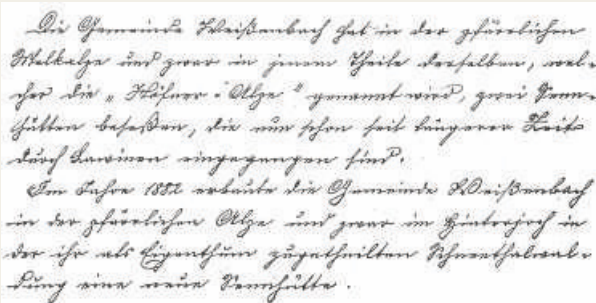 Die Gemeinde Weißenbach hat in der pfärrlichen
Melkalpe und zwar in jenem Theile derselben, wel-
cher die „Höfner-Alpe" genannt wird, zwei Senn-
hütten beseßen, die nun schon seit längerer Zeit
durch Lawinen eingegangen sind.
Im Jahre 1882 erbaute die Gemeinde Weißenbach
in der pfärrlichen Alpe und zwar im Hinterjoch in
der ihr als Eigenthum zugetheilten Schneethalwal-
dung eine neue Sennhütte.